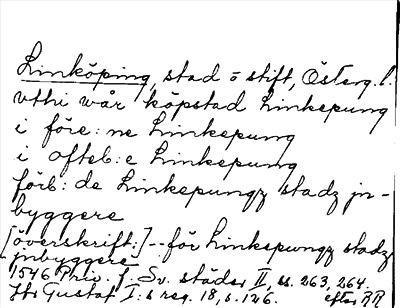 Linköping, stad o stift, Österg. l.
vthi wår köpstad Linkepung
i före:ne Linkepung
i ofteb:e Linkepung
förb:de Linkepungz stadz jn-
byggere
[överskrift:]--för Linkepungz stadz
jnbyggere
1546 Priv. f. Sv. städer II, ss. 263, 264.
Gustaf I:s reg. 18, s. 126. efter RR